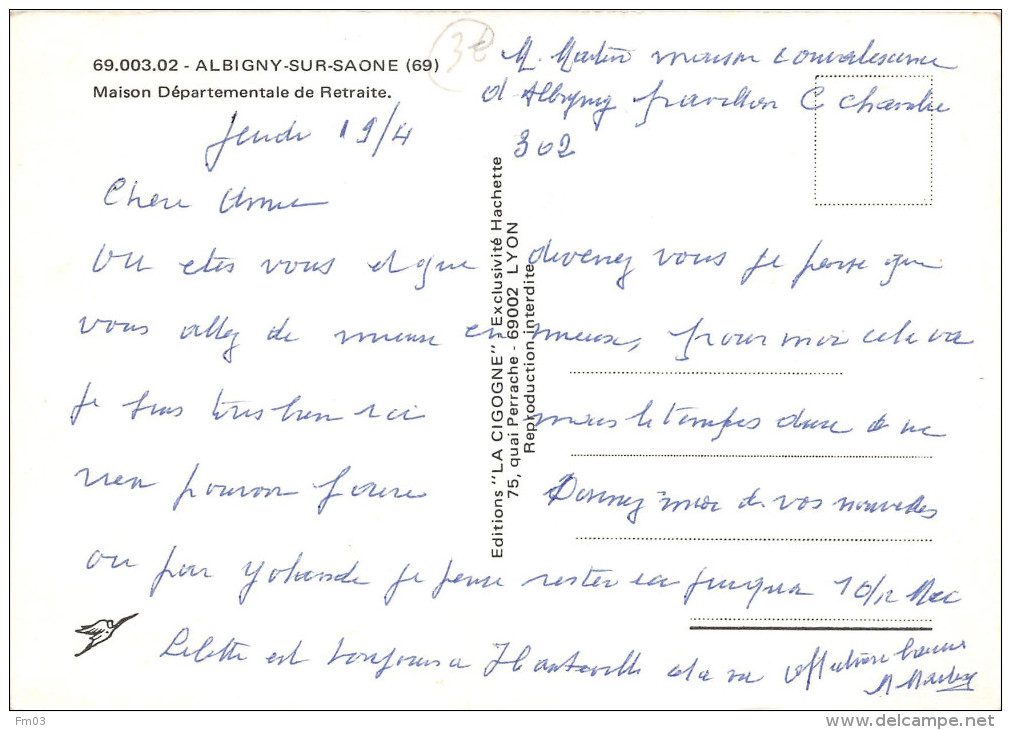 3€
M. Martin maison convalescence
d'Albigny pavillon C chambre
302
69.003.02 - ALBIGNY-SUR-SAONE (69)
Maison Départementale de Retraite.
Jeudi 19/4
Chere Anna
Ou etes vous et que devenez vous je pense que
vous allez de mieux en mieux, pour moi cela va
je suis tres bien ici mais le temps dure de ne
rien pouvoir faire Donnez moi de vos nouvelles
ou par Yolande je pense rester ici jusqu'a 10/12 Mai
Lilette est toujours a Hauteville cela va Affectueux baisers
M Martin
Editions "LA CIGOGNE" - Exclusivité Hachette
75, quai Perrache - 69002 LYON
Reproduction interdite
Fm03
delcampe.net